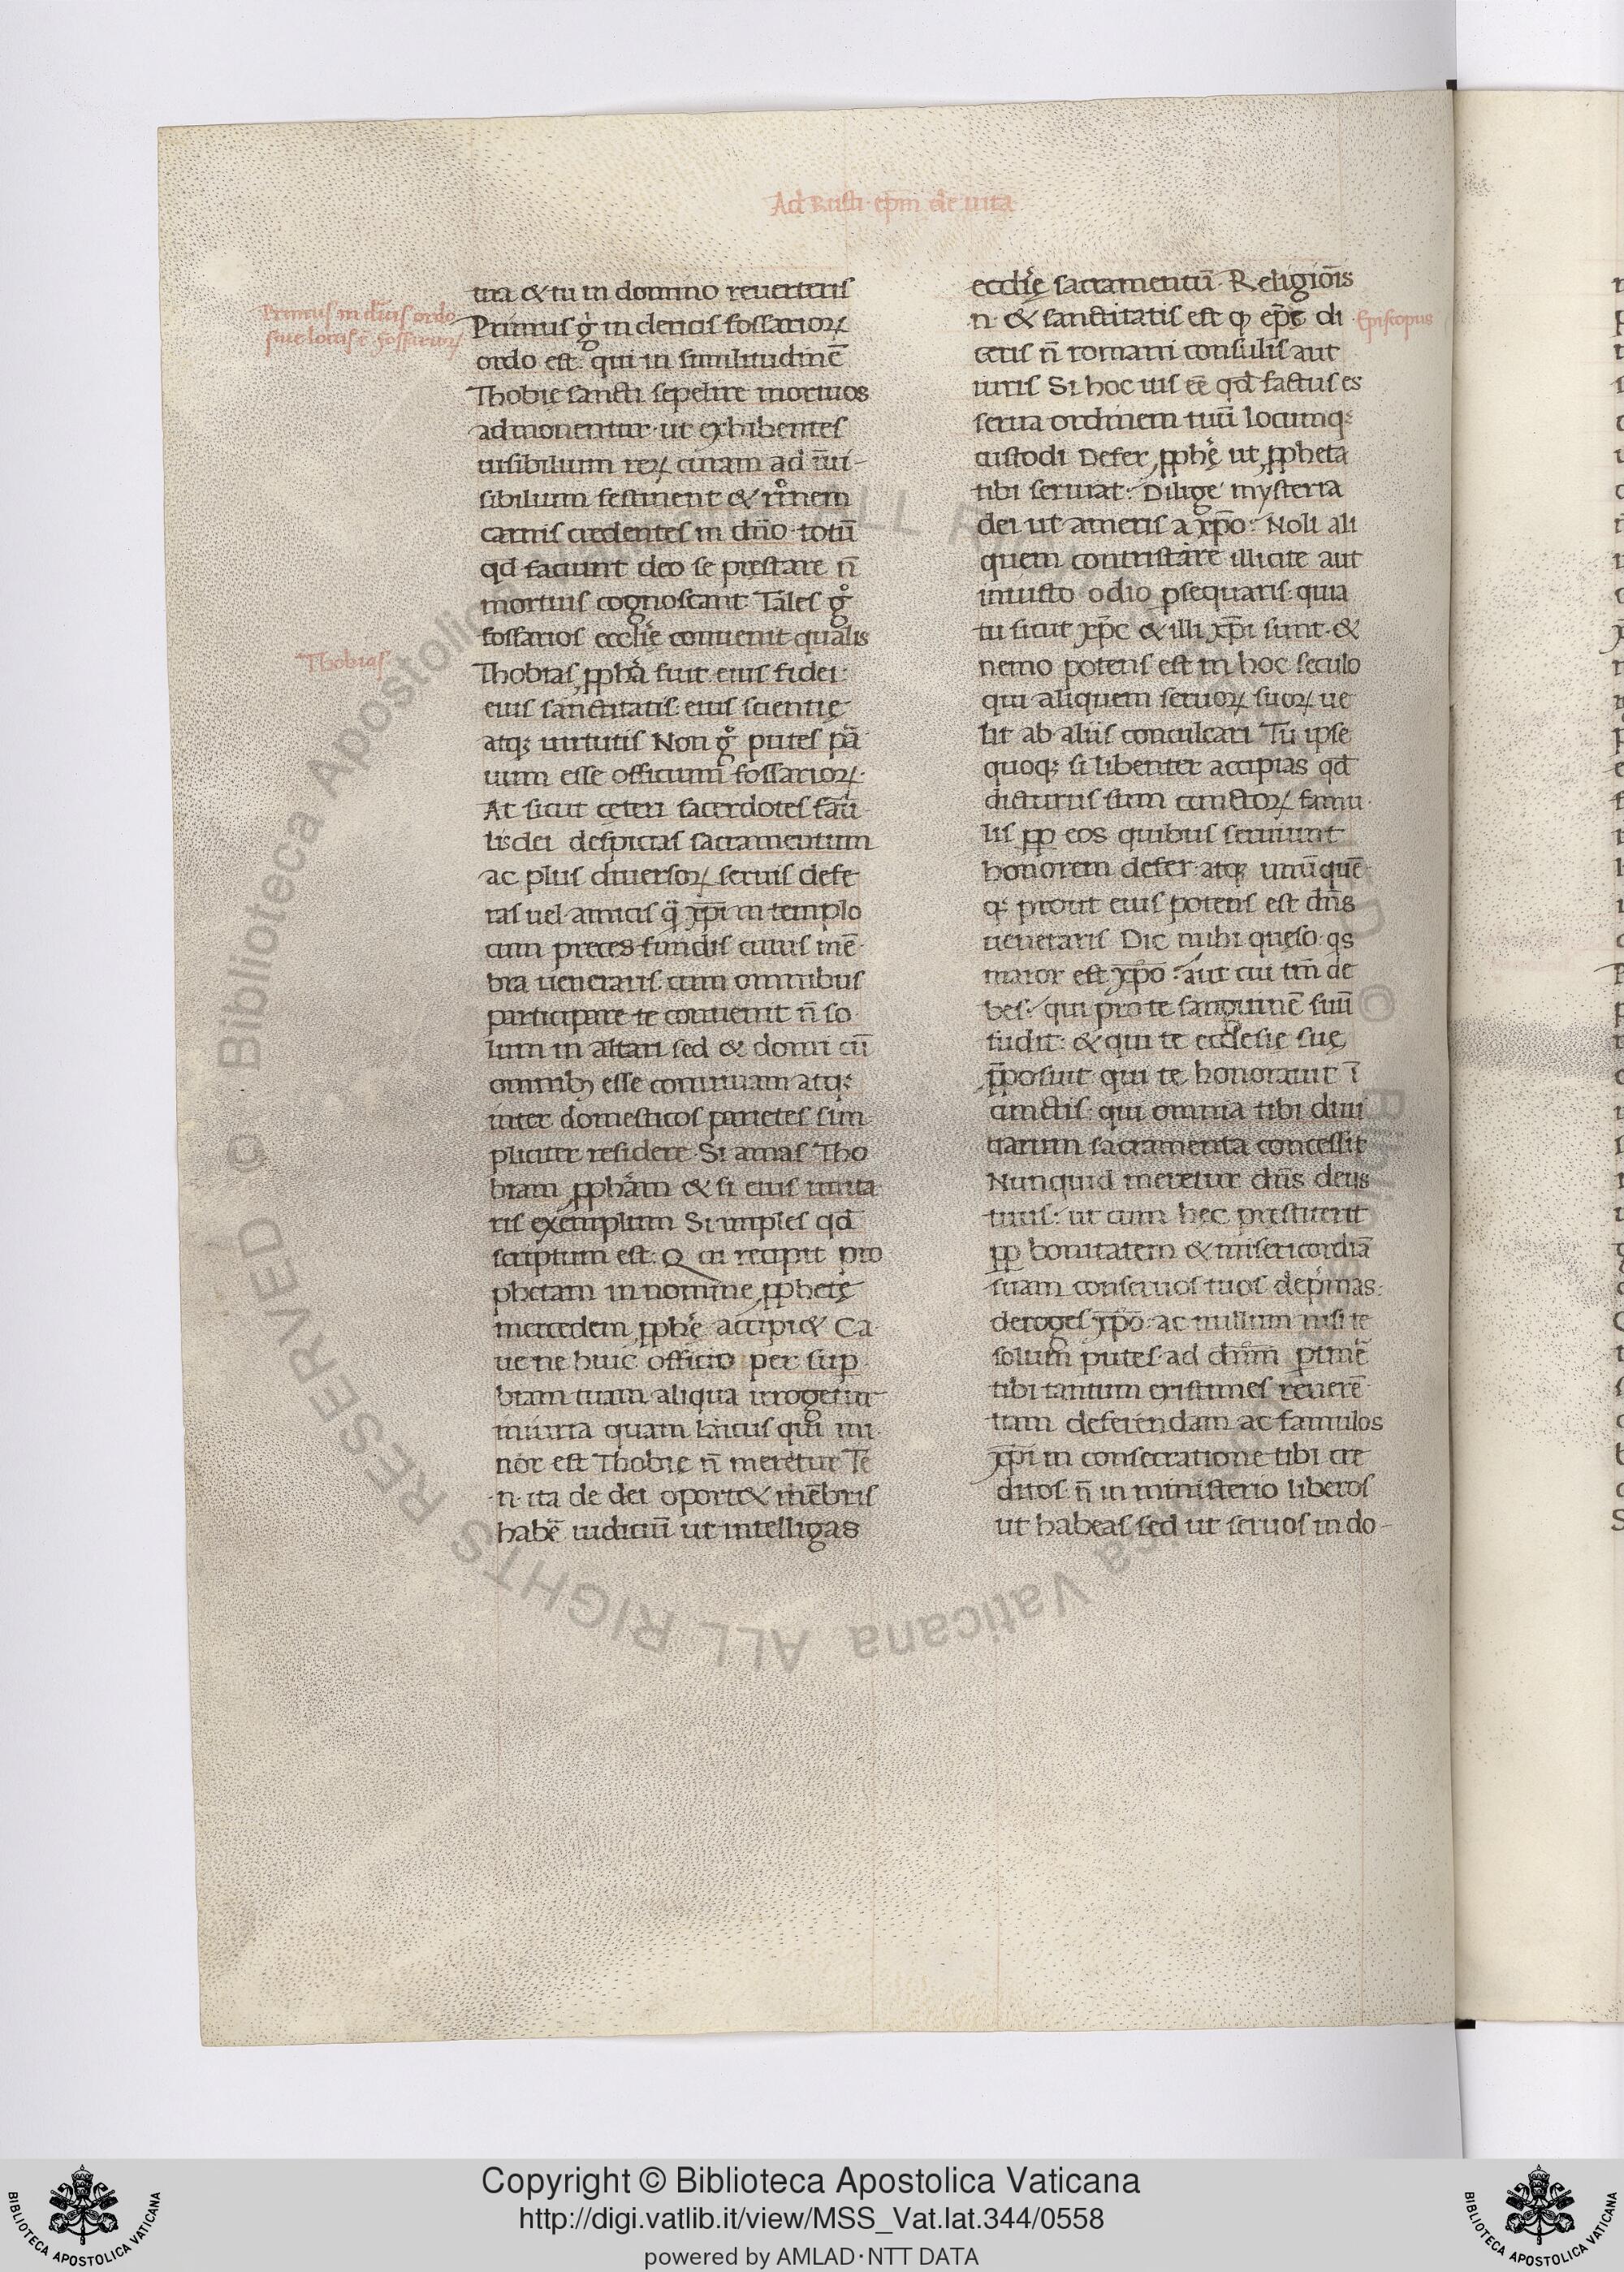 Ad Rusti. epm̄ de uita
tua & tu in domino reuerteris
Primus in diuis ordo
siue locus ē fossariorꝝ
Primus g̊ in clericis fossariorꝝ
ordo est. qui in similitudinē
Thobię sancti sepelire mortuos
admonentur. ut exhibentes
uisibilium rerꝝ curam ad īui-
sibilium festinent & rr̊nem
carnis credentes in dn̄o. totū
qd̄ faciunt deo se pręstare n̄
mortuis cognoscant Tales g̊
fossarios ecclię conuenit qualis
Thobias
Thobias ꝓpha fuit. eius fidei.
eius sanctitatis. eius scientię
atq; uirtutis Non g̊ putes pa
uum esse officium fossariorꝝ.
At sicut ceteri sacerdotes fau
lis dei despicias sacramentum
ac plus diuersorꝝ seruis defe
ras uel amicis q̄ xp̄i in templo
cum preces fundis cuius mē
bra ueneraris. cum omnibus
participare te conuenit n̄ so
lum in altari sed & domi cū
omnibꝫ esse conuiuam atq;
inter domesticos parietes sim
pliciter residere Si amas Tho
biam ꝓpham & si eius imita
ris exemplum Si imples qd̄
scriptum est. Qui recipit pro
phetam in nomine ꝓphetę
mercedem ꝓphe accipi& Ca
ue ne huic officio per suꝑ
biam tuam aliqua irrogetur
iniuria quam laicus qui mi
nor est Thobię n̄ meretur Te
n. ita de dei oport& mēbris
habē iudiciū ut intelligas
ecclię sacramentū. Religiōis
n. & sanctitatis est ꝙ ep̄c di
Episcopus
ceris n̄ romani consulis aut
iuris Si hoc uis eē qd̄ factus es
serua ordinem tuū locumq;
custodi Defer ꝓphę ut ꝓpheta
tibi seruiat. Dilige mysteria
dei ut ameris a xp̄o. Noli ali
quem contristare illicite aut
iniusto odio ꝑsequaris. quia
tu sicut xp̄c & illi xp̄i sunt. &
nemo potens est in hoc seculo
qui aliquem seruorꝝ suorꝝ ue
lit ab aliis conculcari Tu ipse
quoq; si libenter accipias qd̄
dicturus sum cunctorꝝ famu
lis ꝓp eos quibus seruiunt
honorem defer. atq; unūquē
q; prout eius potens est dn̄s
ueneraris Dic mihi quęso. qs
maior est xp̄o. aut cui tm̄ de
bes. qui pro te sanguinē suū
fudit. & qui te ecclesię suę
p̄posuit qui te honorauit ī
cunctis. qui omnia tibi diui
tiarum sacramenta concessit
Nunquid meretur dn̄s deus
tuus. ut cum hęc pręstiterit
ꝓp bonitatem & misericordiā
suam conseruos tuos depimas.
deroges xp̄o. ac nullum nisi te
solum putes ad dn̄m ptinē
tibi tantum existimes reuerē
tiam deferendam ac famulos
xp̄i in consecratione tibi cre
ditos. n̄ in ministerio liberos
ut habeas sed ut seruos in do-
Copyright © Biblioteca Apostolica Vaticana
http://digi.vatlib.it/view/MSS_Vat.lat.344/0558
powered by AMLAD·NTT DATA